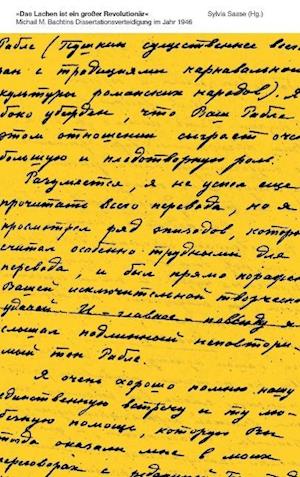 »Das Lachen ist ein großer Revolutionär« Sylvia Sasse (Hg.)
Michail M. Bachtins Dissertationsverteidigung im Jahr 1946
Рабле (Пушкин существеннее всего
ван с традициями карнавальной
культуры романских народов). Я
боко убежден, что Ваш Рабле
этом отношении сыграет оче
большую и плодотворную роль.
Разумеется, я не успел еще
прочитать всего перевода, но я
просмотрел ряд эпизодов, которые
считал особенно трудными для
перевода, и был прямо поражен
Вашей исключительной творческой
удачей. И – главное – повсюду я
слышал подлинный неповтори-
мый тон Рабле.
Я очень хорошо помню нашу
единственную встречу и ту лю-
безную помощь, которую Вы
тогда оказали мне в моих
переговорах с